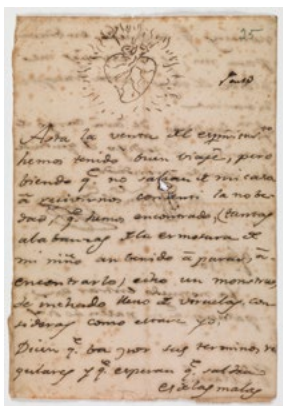 25
Asta la venta del espiritu
hemos tenido buen viaje, pero
biendo q.e no salian de mi casa
a recivirnos la nobe
dad, q.e hemos encontrado, (tantas
alabanzas de la ermosura de
mi niño an benido á parar, á
encontrarlo, echo un monstruo
de inchado lleno de viruelas, con
sideras como estare yo.
Dicen q.e ba por sus terminos re
gulares y q.e esperan q.e saldra
es de las malas